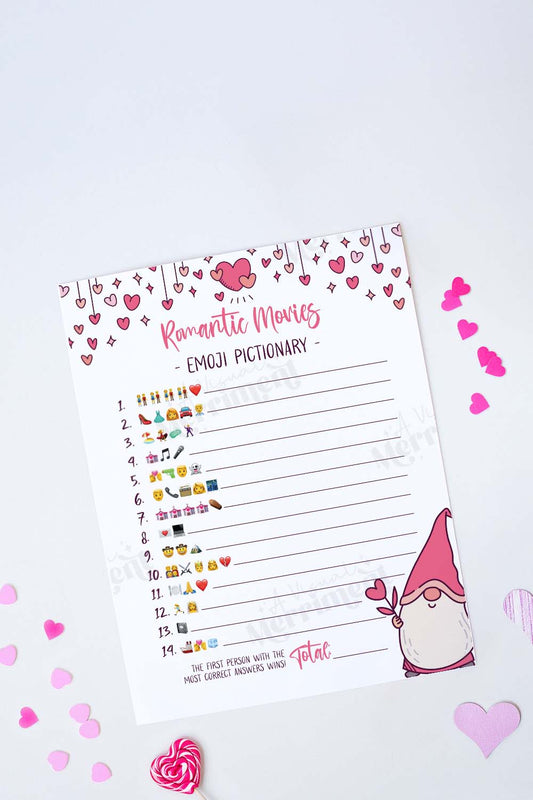 Romantic Movies
- EMOJI PICTIONARY -
1.
2.
3.
4.
5.
6.
7.
8.
9.
10.
11.
12.
13.
14.
THE FIRST PERSON WITH THE
MOST CORRECT ANSWERS WINS!
Total
A Visual
Merriment